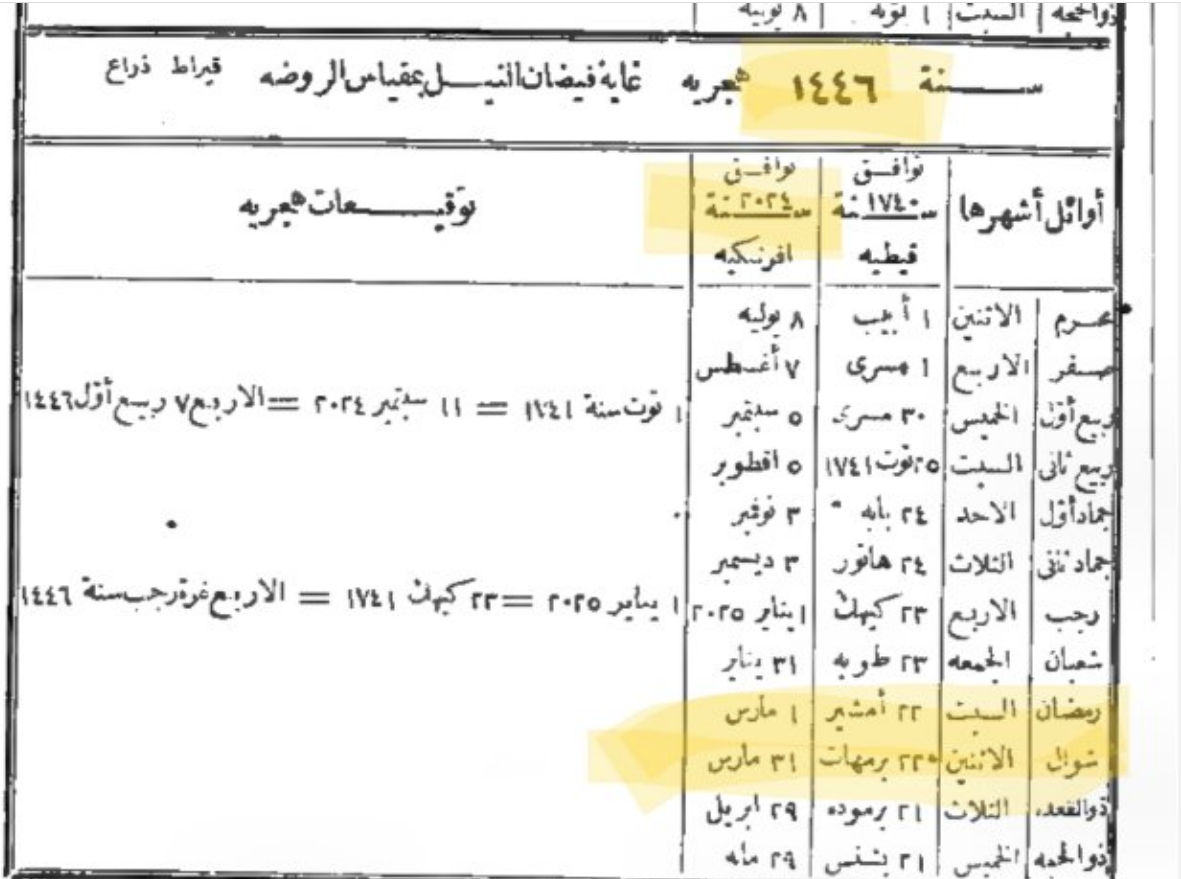 ذوالحجه السبت ١ بؤنه ٨ يونيه
سنة ١٤٤٦ هجريه غاية فيضان النيل بمقياس الروضه قيراط ذراع
أوائل أشهرها توافق سنة ١٧٤٠ قبطيه توافق سنة ٢٠٢٤ افرنكيه توقيعات هجريه
محرم الاثنين ١ أبيب ٨ يوليه
صفر الاربع ١ مسرى ٧ أغسطس
ربيع أول الخميس ٣٠ مسرى ٥ سبتمبر ١ توت سنة ١٧٤١ = ١١ سبتمبر ٢٠٢٤ = الاربع ٧ ربيع أول ١٤٤٦
ربيع ثانى السبت ٢٥ توت ١٧٤١ ٥ اقطوبر
جماد أول الاحد ٢٤ بابه ٣ نوفمبر
جماد ثانى الثلاث ٢٤ هاتور ٣ ديسمبر
رجب الاربع ٢٣ كيهك ١ يناير ٢٠٢٥ ١ يناير ٢٠٢٥ = ٢٣ كيهك ١٧٤١ = الاربع غرة رجب سنة ١٤٤٦
شعبان الجمعه ٢٣ طوبه ٣١ يناير
رمضان السبت ٢٢ أمشير ١ مارس
شوال الاثنين ٢٢ برمهات ٣١ مارس
ذوالقعده الثلاث ٢١ برموده ٢٩ ابريل
ذوالحجه الخميس ٢١ بشنس ٢٩ مايه